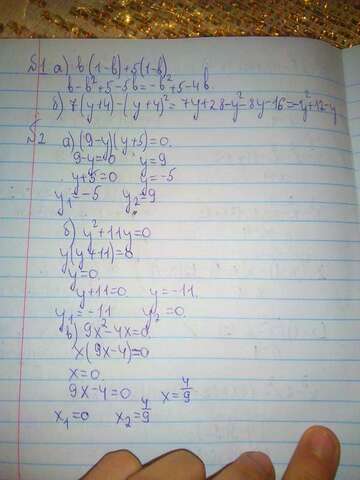 №1 а) b(1-b)+5(1-b)
b-b²+5-5b=-b²+5-4b
б) 7(y+4)-(y+4)²=7y+28-y²-8y-16=-y²+12-y
№2 а) (9-y)(y+5)=0.
9-y=0 y=9
y+5=0 y=-5
y₁=-5 y₂=9
б) y²+11y=0
y(y+11)=0
y=0.
y+11=0 y=-11.
y₁=-11 y₂=0.
в) 9x²-4x=0.
x(9x-4)=0
x=0
9x-4=0 x=4/9
x₁=0 x₂=4/9